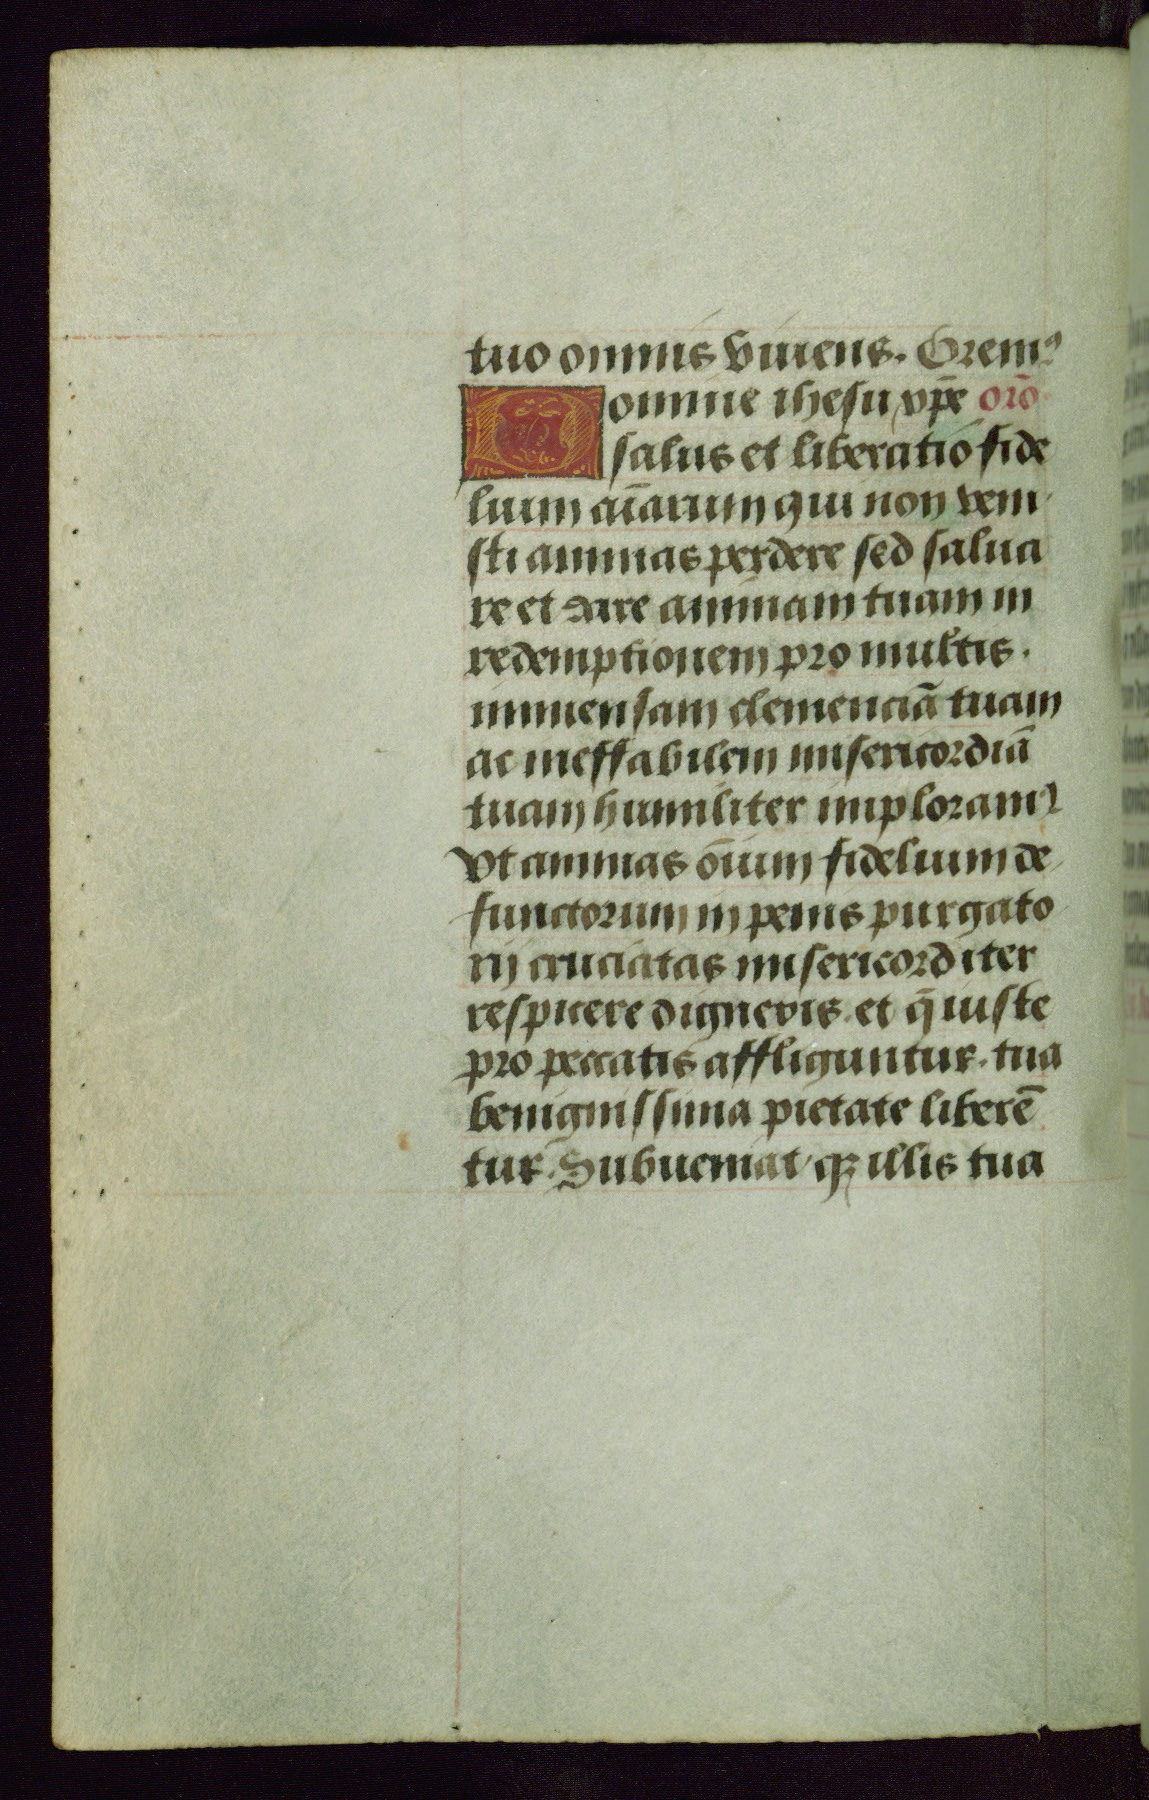 tuo omnis viuens. Oremꝰ
Domine ihesu xp̄e oro̅
salus et liberatio fide
lium aīarum qui non veni
sti animas perdere sed salua
re et dare animam tuam in
redemptionem pro multis.
immensam clemenciā tuam
ac ineffabilem misericordiā
tuam humiliter imploramꝰ
vt animas om̄ium fidelium de
functorum in penis purgato
rij cruciatas misericorditer
respicere digneris. et q̄ iuste
pro peccatis affliguntur. tua
benignissima pietate liberē
tur. Subueniat qꝫ illis tua